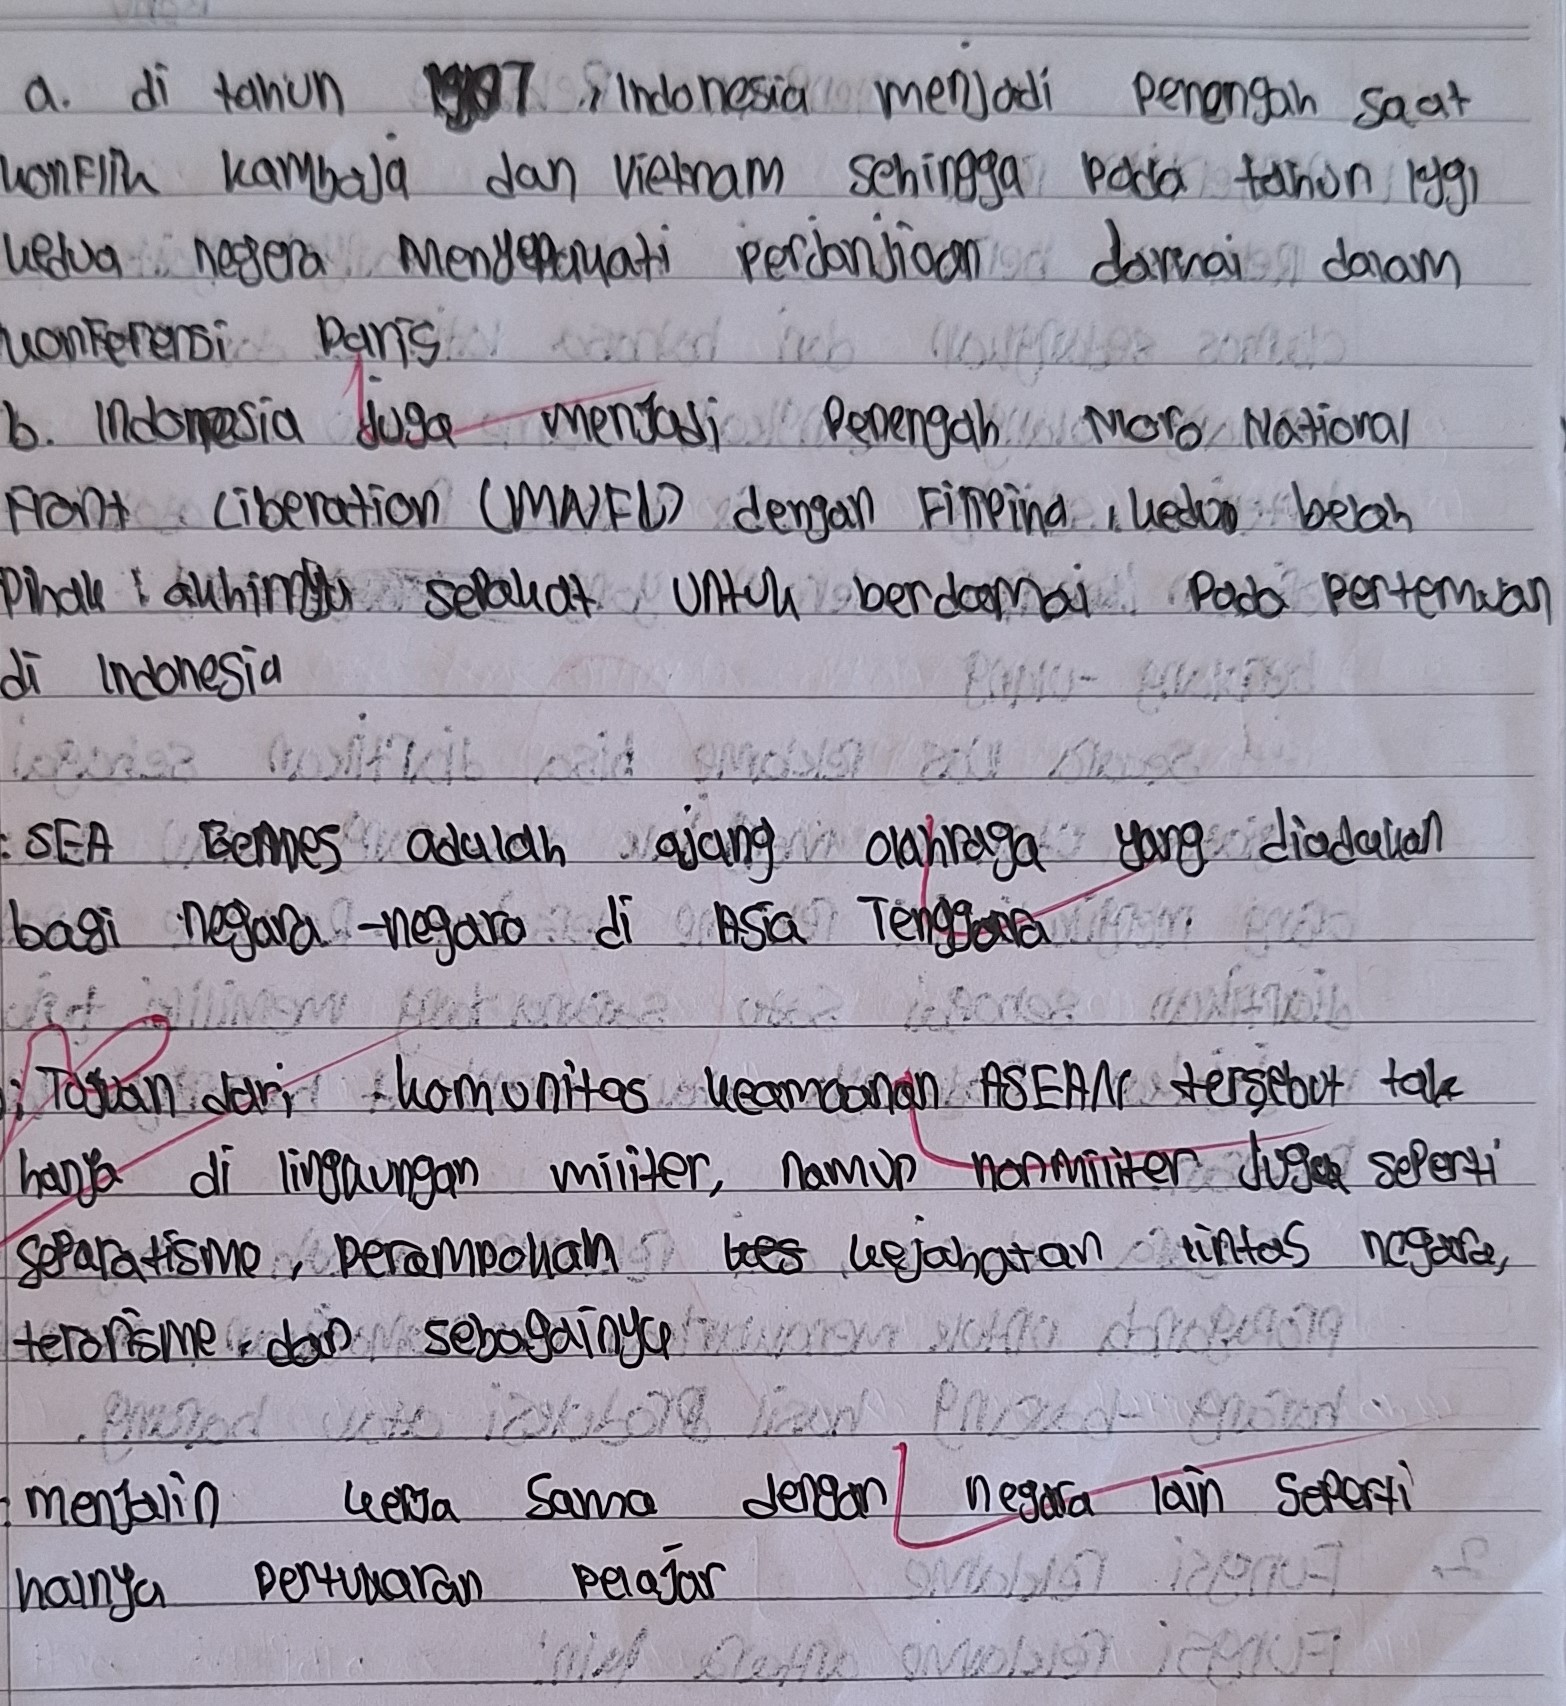 a. di tahun 1987, Indonesia menjadi Penengah saat
konflik kamboja dan Vietnam sehingga pada tahun 1991
kedua negera menyepakati perjanjiaan damai dalam
konferensi Paris
b. Indonesia juga menjadi Penengah Moro National
Front Liberation (MNFL) dengan Filipina, kedua belah
Pihak akhirnya sepakat untuk berdaamai Pada pertemuan
di Indonesia
: SEA Gemes adalah ajang olahraga yang diadakan
bagi negara-negara di Asia Tenggara
: Tujuan dari komunitas keamanan ASEAN tersebut tak
hanya di lingkungan militer, namun nonmiliter juga seperti
separatisme, perampokan kejahatan lintas negara,
terorisme, dan sebagainya
: menjalin kerja sama dengan negara lain seperti
halnya pertukaran pelajar